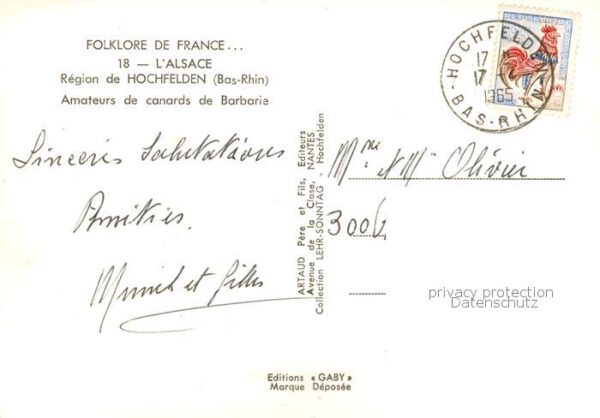 FOLKLORE DE FRANCE...
18 — L'ALSACE
Région de HOCHFELDEN (Bas-Rhin)
Amateurs de canards de Barbarie
Sincères Salutations
Amitiés.
et Gilles
ARTAUD Père et Fils, Editeurs
Avenue de la Close, NANTES
Collection LEHR-SONNTAG Hochfelden
HOCHFELDEN
17 H
17 - 2
1965
BAS-RHIN
Mme et Mr Olivier
privacy protection
Datenschutz
Editions « GABY »
Marque Déposée